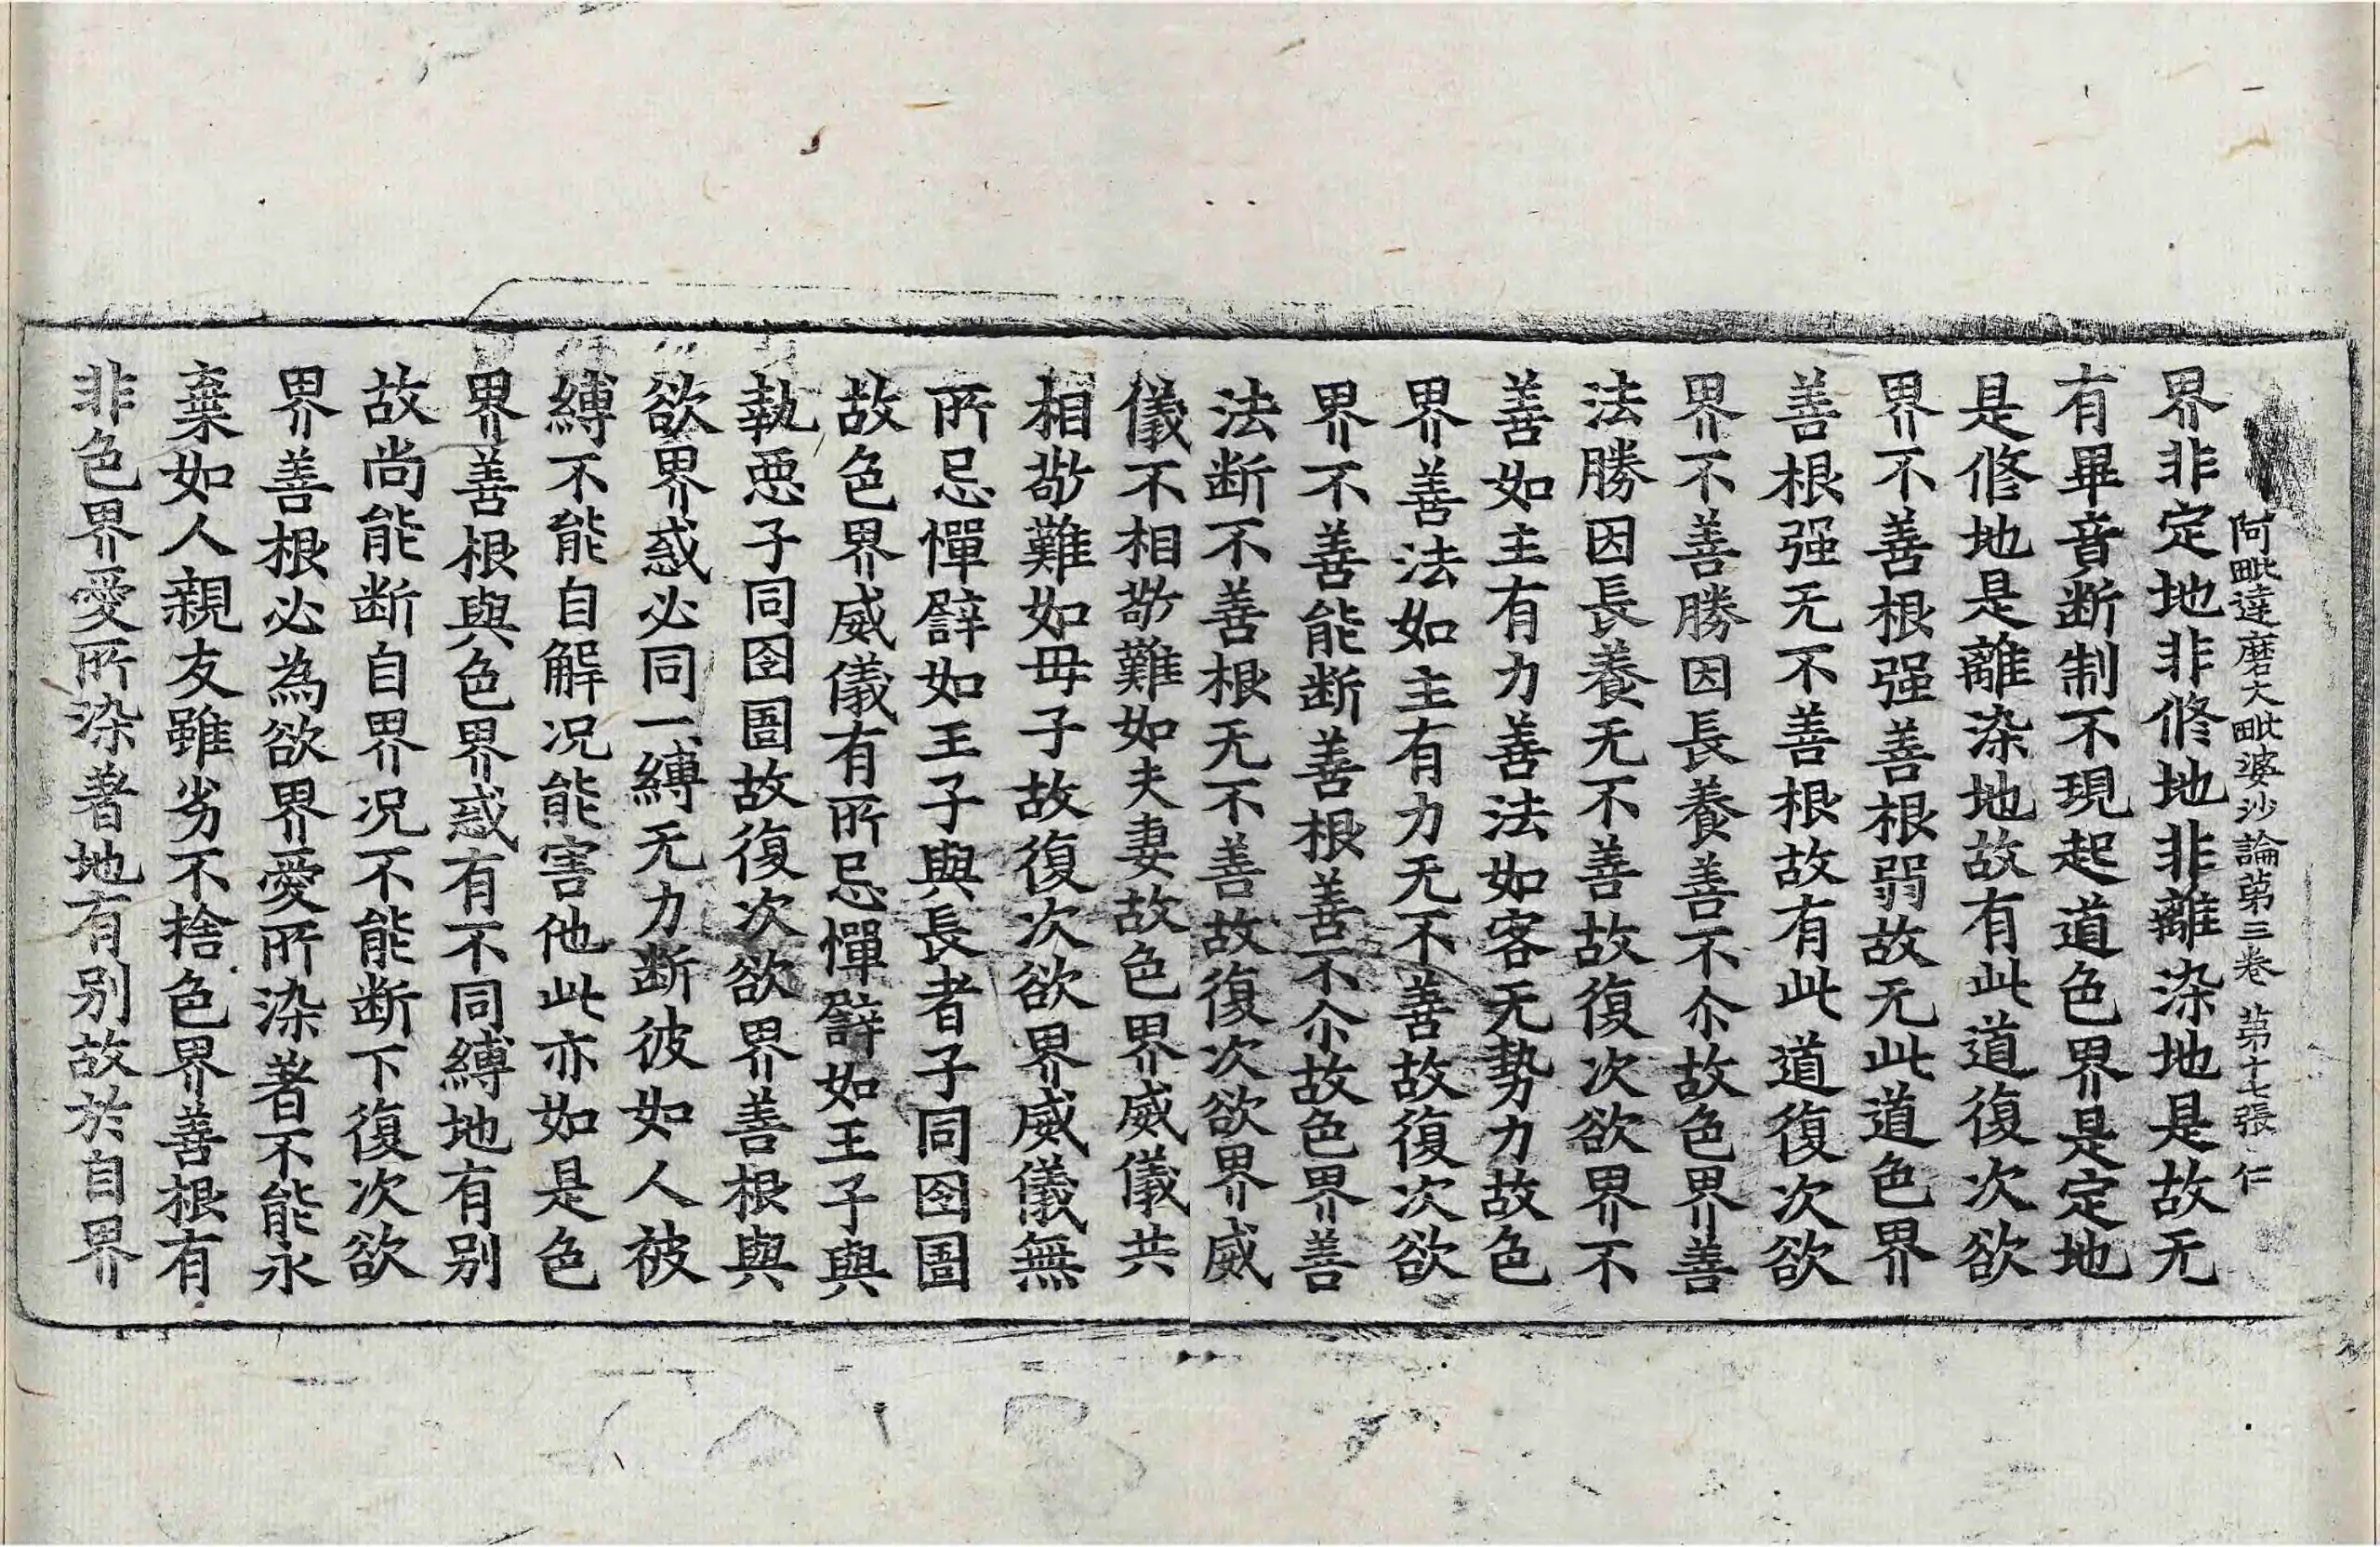 阿毗達磨大毗婆沙論苐三卷 苐十七張 仁
界非定地非修地非離染地是故无
有畢竟断制不現起道色界是定地
是修地是離染地故有此道復次欲
界不善根强善根弱故无此道色界
善根强无不善根故有此道復次欲
界不善勝因長養善不尒故色界善
法勝因長養无不善故復次欲界不
善如主有力善法如客无勢力故色
界善法如主有力无不善故復次欲
界不善能断善根善不尒故色界善
法断不善根无不善故復次欲界威
儀不相敬難如夫妻故色界威儀共
相敬難如母子故復次欲界威儀無
所忌憚譬如王子與長者子同囹圄
故色界威儀有所忌憚譬如王子與
執惡子同囹圄故復次欲界善根與
欲界惑必同一縛无力断彼如人被
縛不能自解况能害他此亦如是色
界善根與色界惑有不同縛地有别
故尚能断自界况不能断下復次欲
界善根必為欲界愛所染著不能永
棄如人親友雖劣不捨色界善根有
非色界愛所染著地有别故於自界